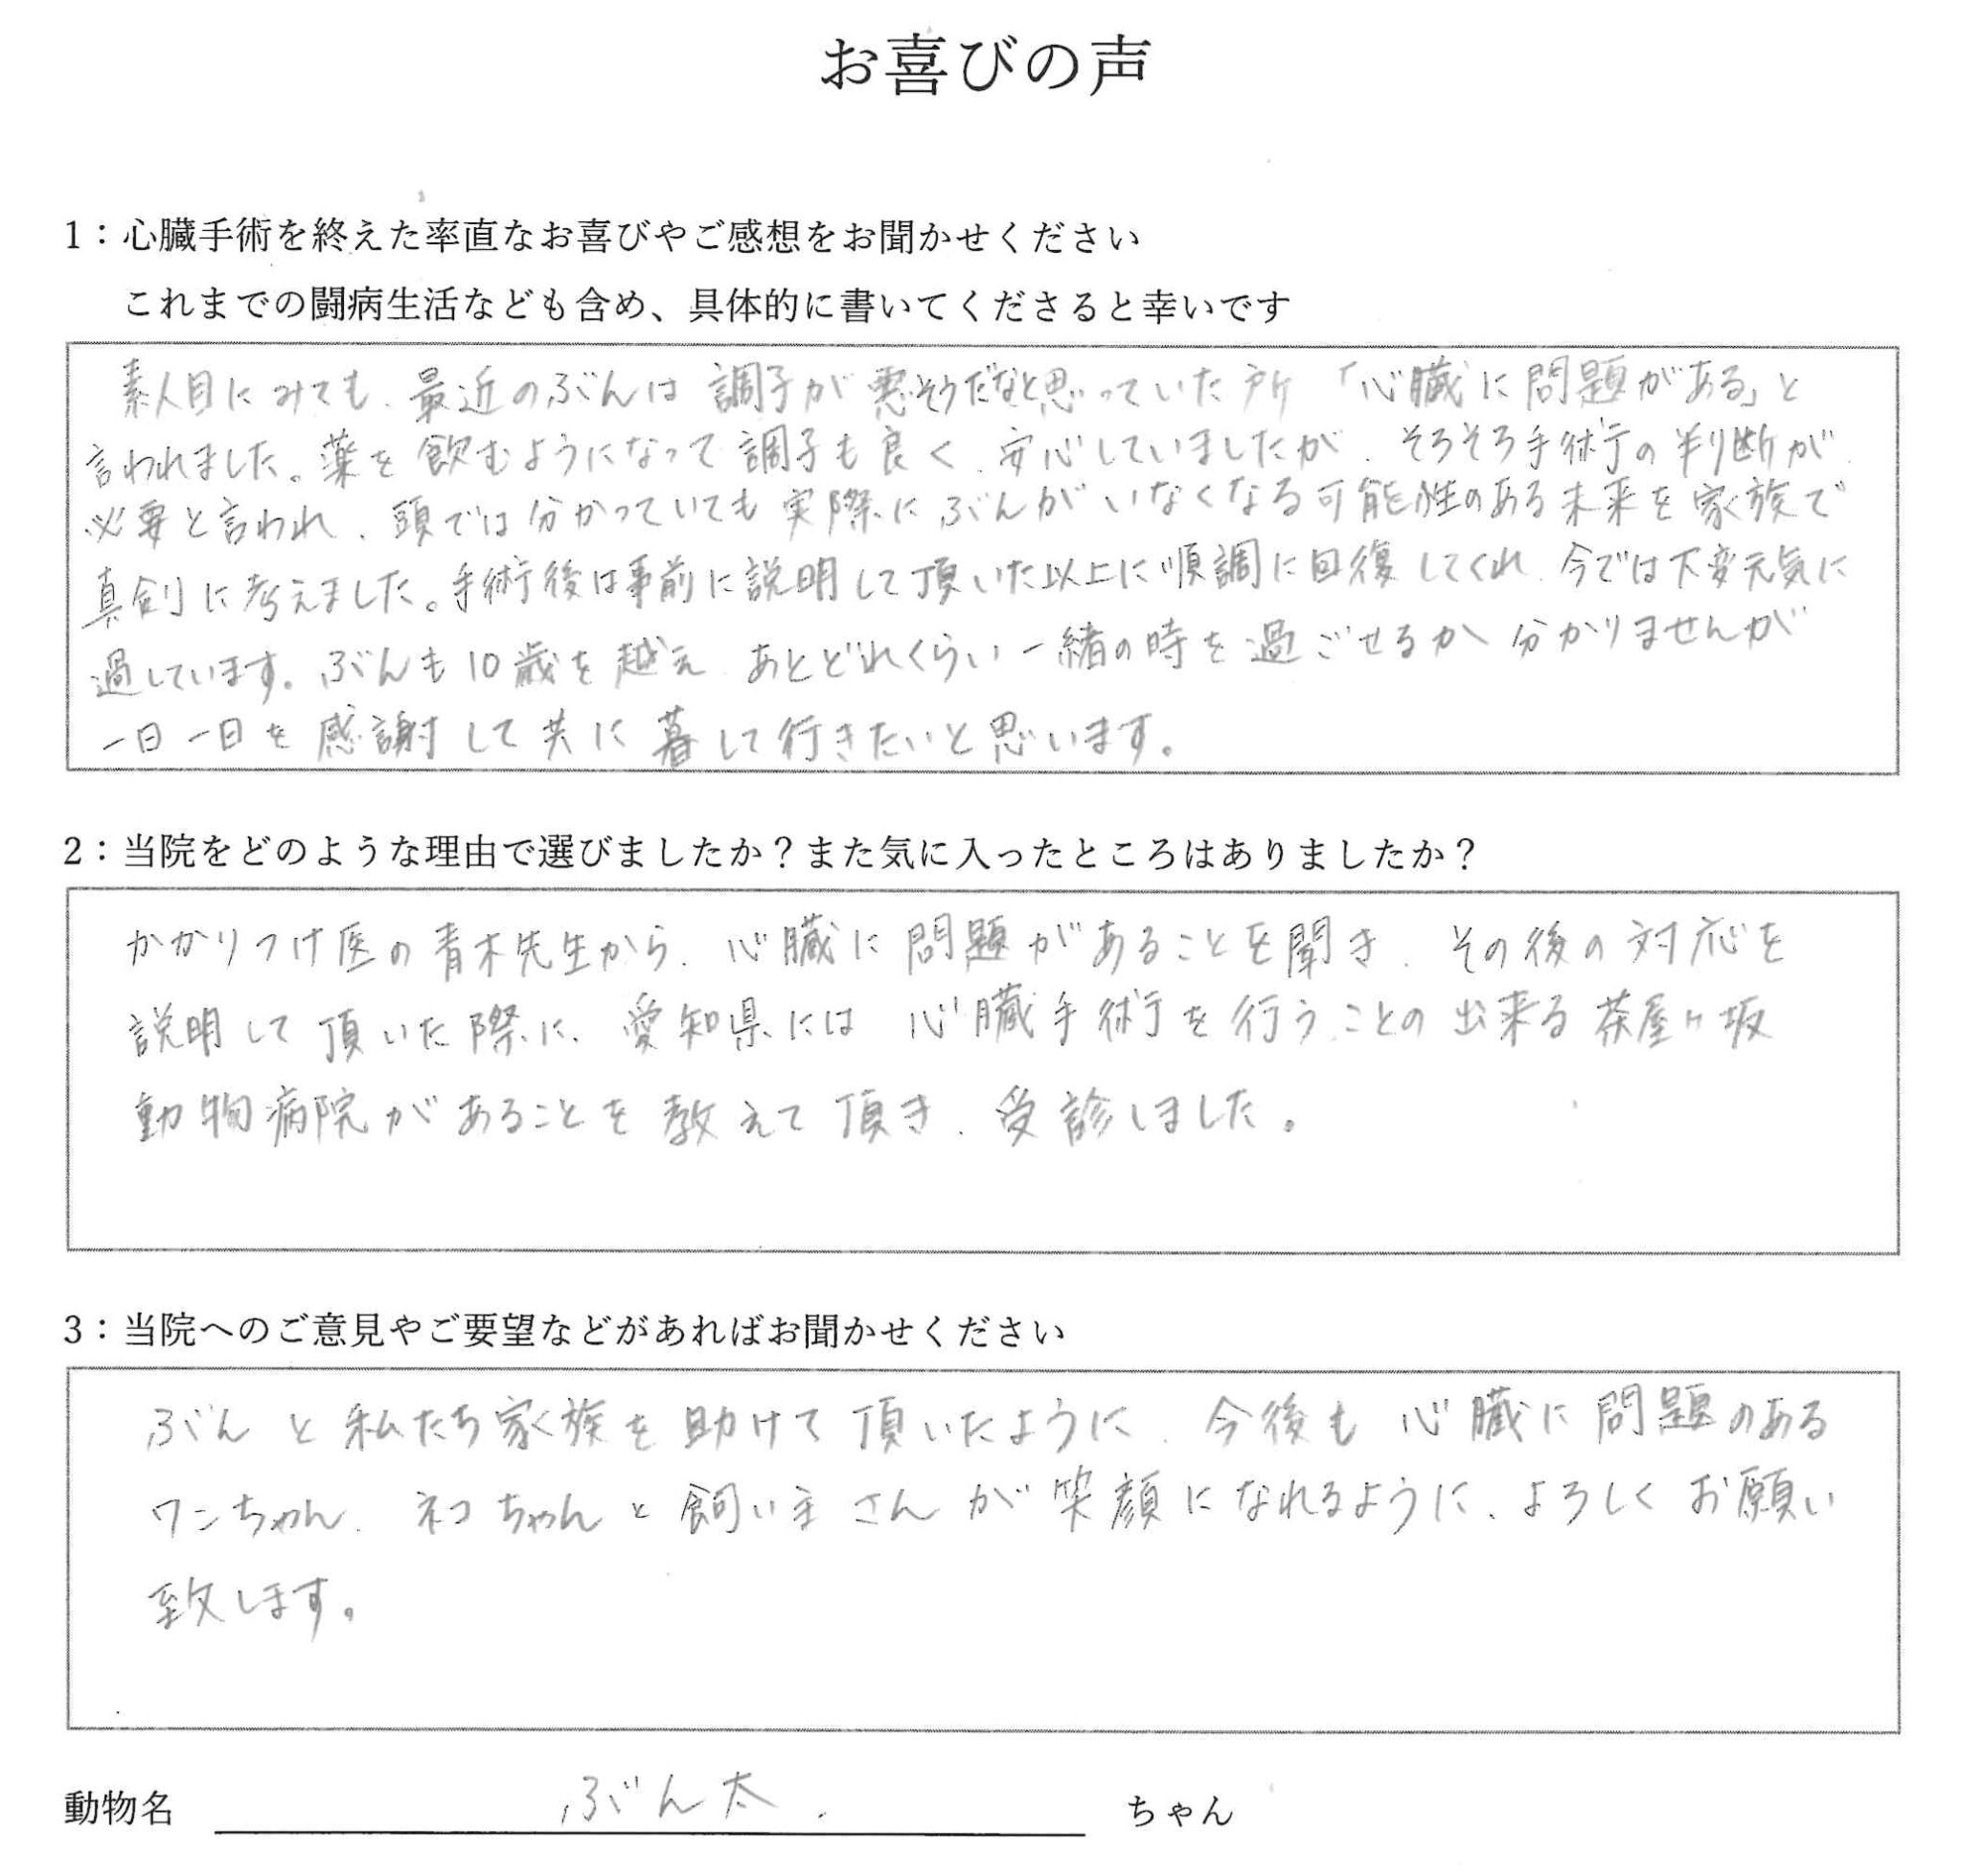 お喜びの声
1：心臓手術を終えた率直なお喜びやご感想をお聞かせください
これまでの闘病生活なども含め、具体的に書いてくださると幸いです
素人目にみても、最近のぶんは調子が悪そうだなと思っていた所「心臓に問題がある」と
言われました。薬を飲むようになって調子も良く、安心していましたが、そろそろ手術の判断が
必要と言われ、頭では分かっていても実際にぶんがいなくなる可能性のある未来を家族で
真剣に考えました。手術後は事前に説明して頂いた以上に順調に回復してくれ、今では大変元気に
過しています。ぶんも10歳を越え、あとどれくらい一緒の時を過ごせるか分かりませんが
一日一日を感謝して共に暮して行きたいと思います。
2：当院をどのような理由で選びましたか？また気に入ったところはありましたか？
かかりつけ医の青木先生から、心臓に問題があることを聞き、その後の対応を
説明して頂いた際に、愛知県には心臓手術を行うことの出来る茶屋ヶ坂
動物病院があることを教えて頂き、受診しました。
3：当院へのご意見やご要望などがあればお聞かせください
ぶんと私たち家族を助けて頂いたように、今後も心臓に問題のある
ワンちゃん、ネコちゃんと飼い主さんが笑顔になれるように、よろしくお願い
致します。
動物名 ぶん太. ちゃん